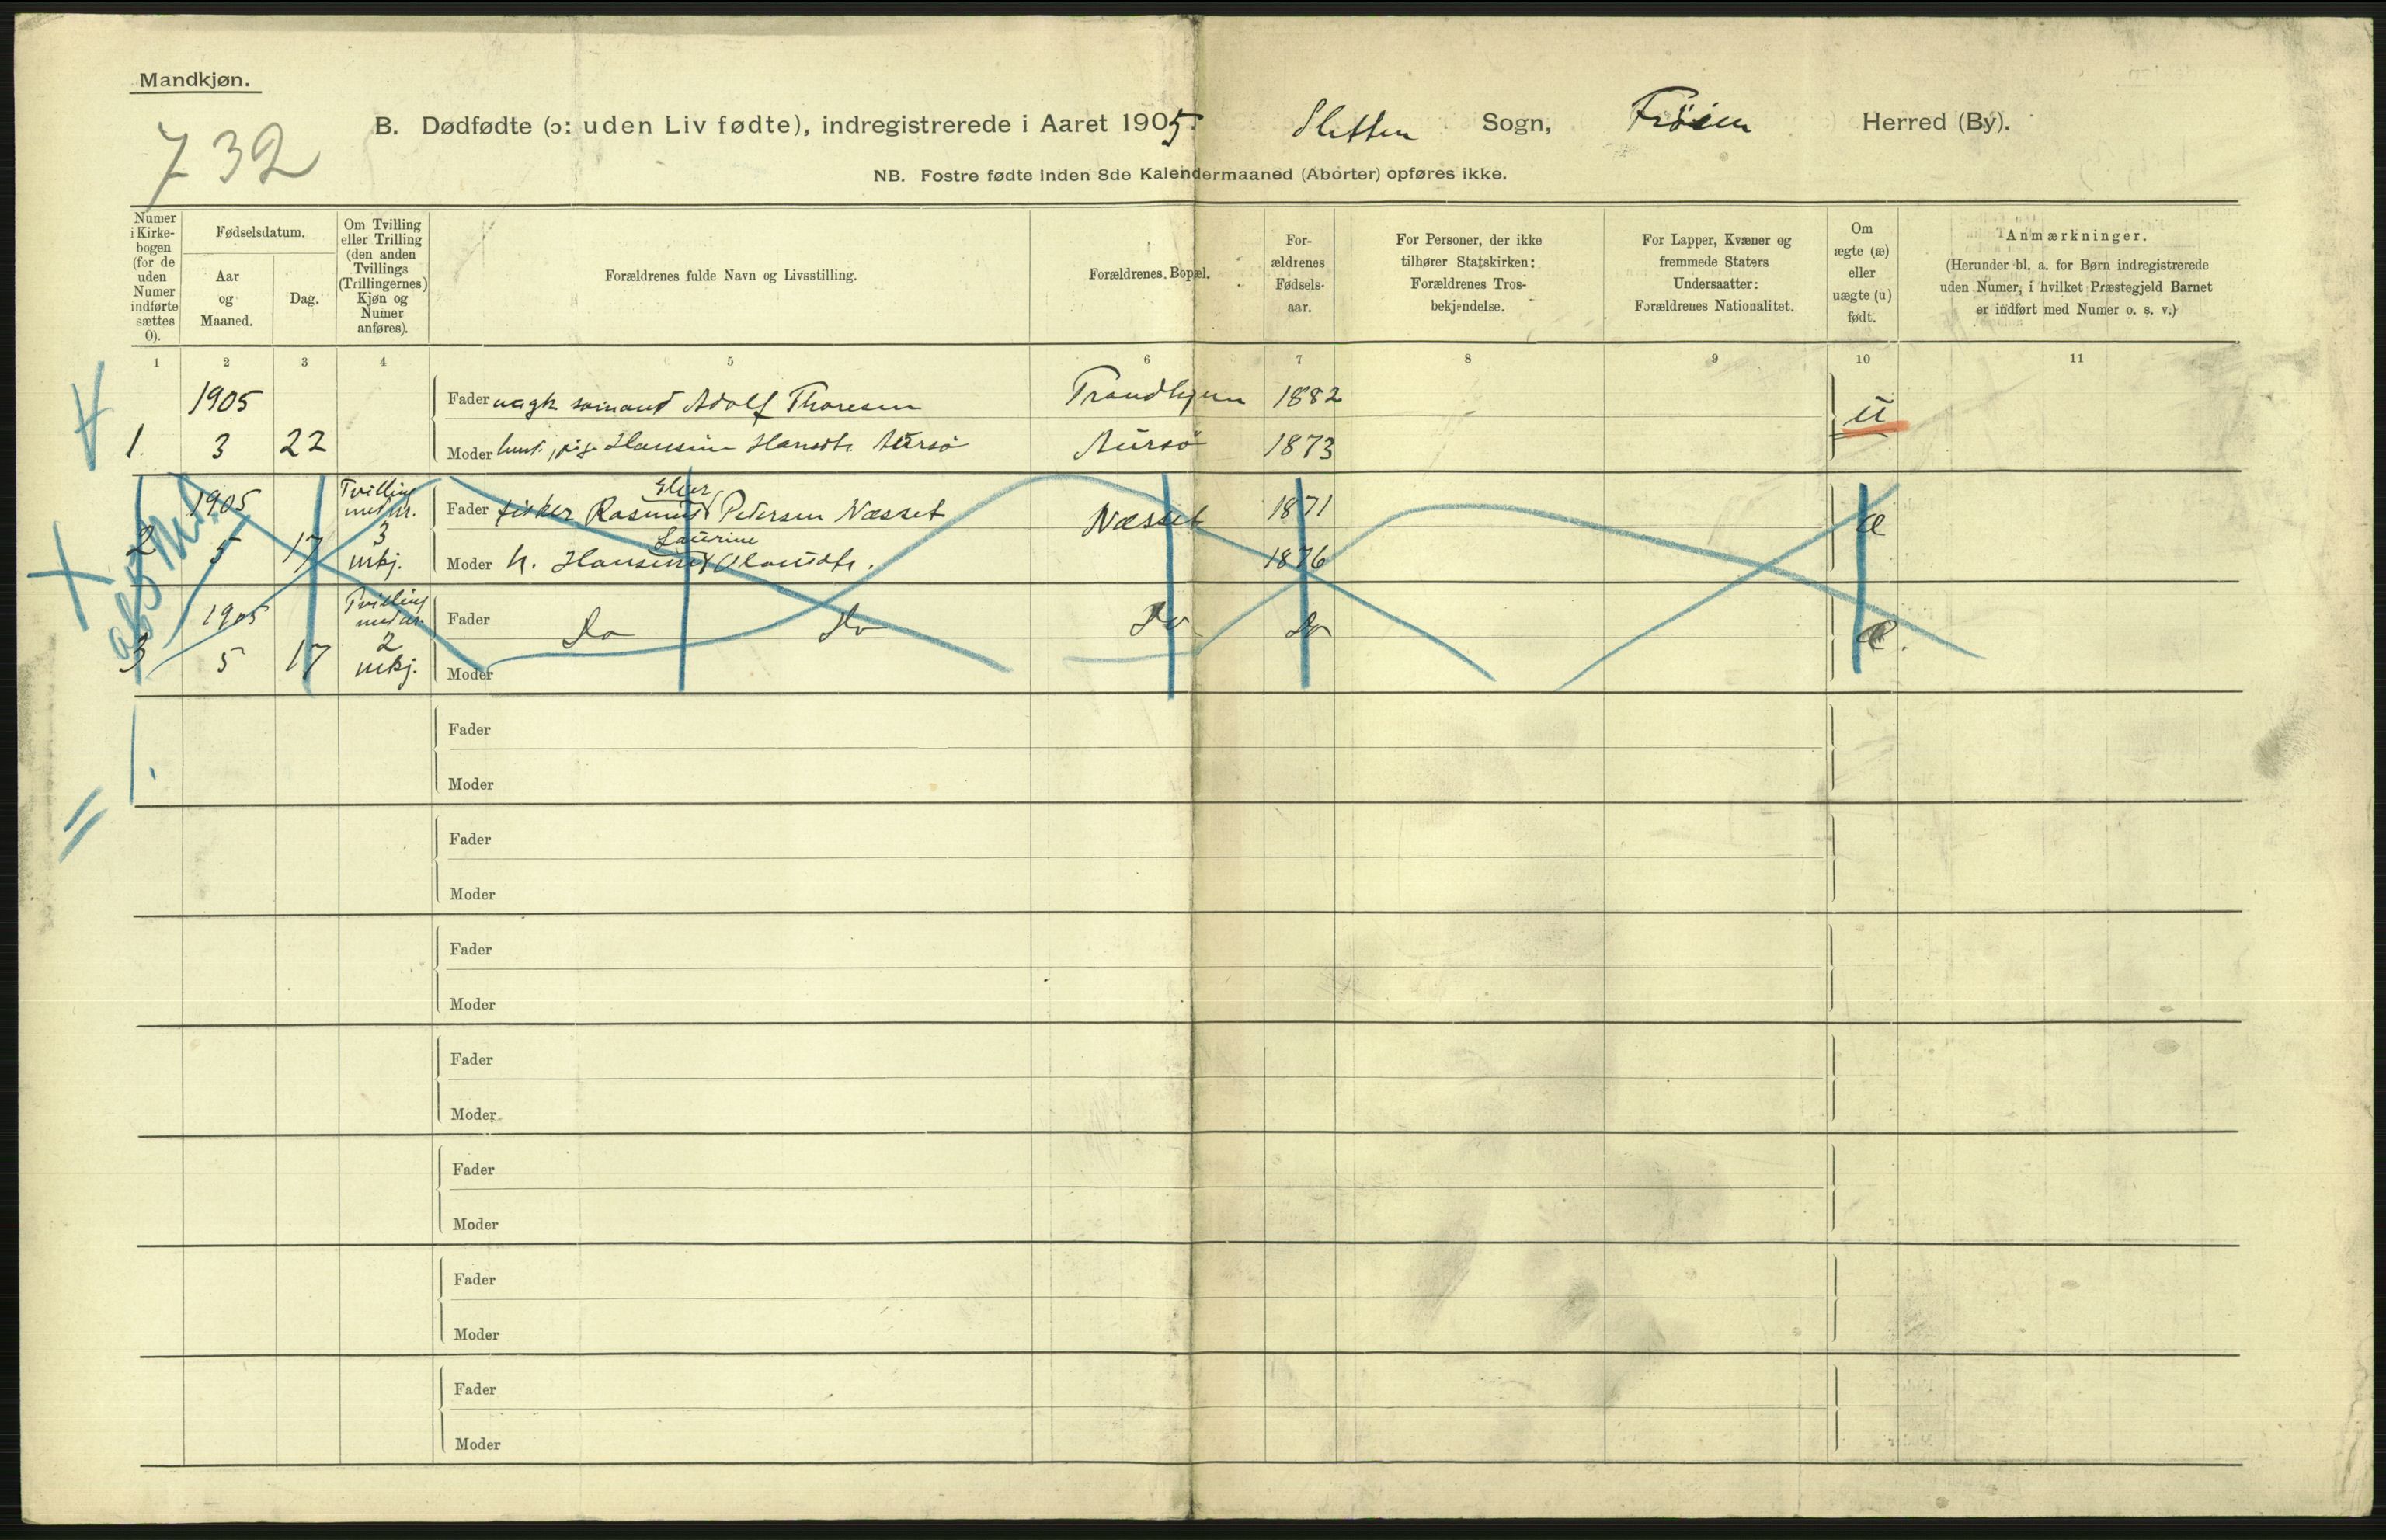 Mandkjøn.
732
B. Dødfødte (ɔ: uden Liv fødte), indregistrerede i Aaret 1905. Sletten Sogn, Frøien Herred (By).
NB. Fostre fødte inden 8de Kalendermaaned (Aborter) opføres ikke.
Numer i Kirkebogen (for de uden Numer indførte sættes 0).
Fødselsdatum.
Aar og Maaned.
Dag.
Om Tvilling eller Trilling (den anden Tvillings (Trillingernes) Kjøn og Numer anføres).
Forældrenes fulde Navn og Livsstilling.
Forældrenes Bopæl.
Forældrenes Fødselsaar.
For Personer, der ikke tilhører Statskirken: Forældrenes Trosbekjendelse.
For Lapper, Kvæner og fremmede Staters Undersaatter: Forældrenes Nationalitet.
Om ægte (æ) eller uægte (u) født.
Anmærkninger.
(Herunder bl. a. for Børn indregistrerede uden Numer, i hvilket Præstegjeld Barnet er indført med Numer o. s. v.)
1 2 3 4 5 6 7 8 9 10 11
1905 Fader Adolf Thoresen Trondhjem 1882 u
1. 3 22 Moder Hansine Hansdtr. Aursø Aursø 1873
1905 Tvilling med nr. Fader fisker Rasmus Elier Petersen Næsset Næsset 1871 æ
2 5 17 3 mkj. Moder h. Hansine Laurine Olausdtr. 1876
1905 Tvilling med nr. Fader Do Do Do Do æ.
3 5 17 2 mkj. Moder
Fader
Moder
Fader
Moder
Fader
Moder
Fader
Moder
Fader
Moder
Fader
Moder
Fader
Moder